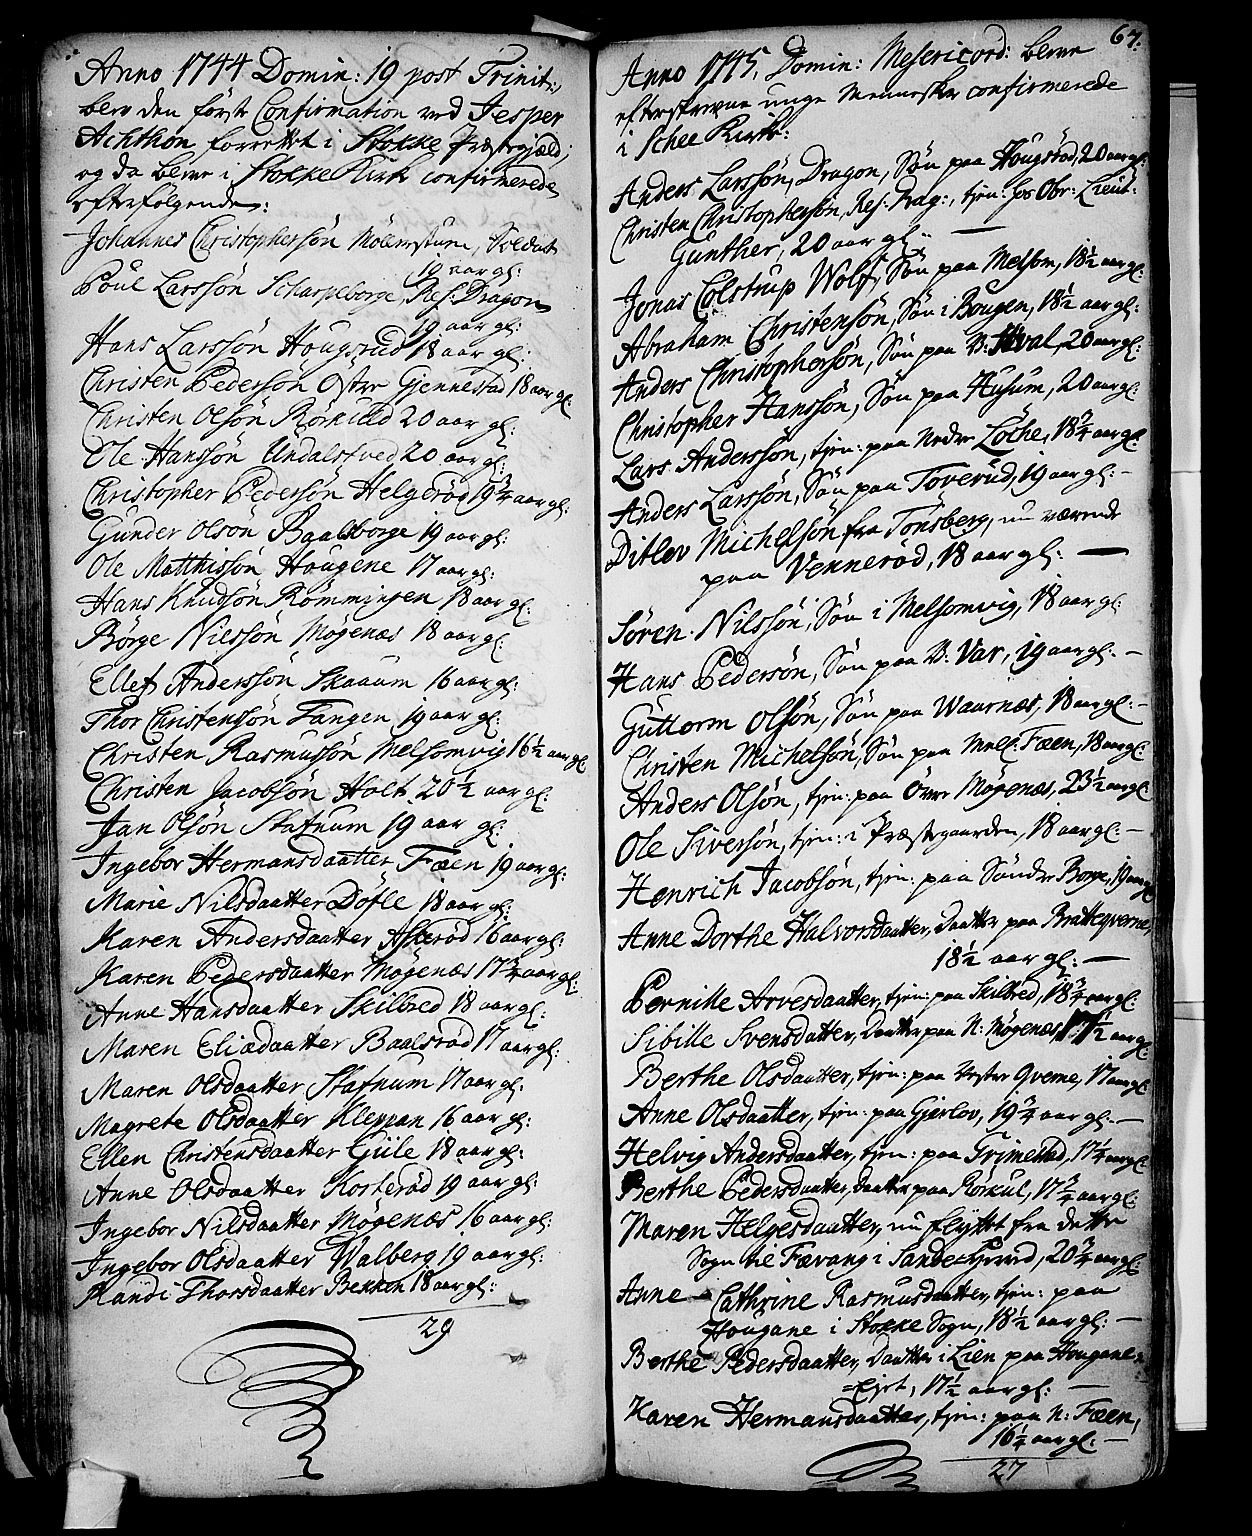 Anno 1744 Domin: 19 post Trinit:,
blev den första Confirmation ved Jesper
Achthon forrettet i Stokke Præstegield;
og da bleve i Stokke Kirke confirmerede
efterfølgende:
Johannes Christophersön Mölenstuen, Soldat
19 aar gl:
Poul Larssön Scharpeborge, Res: Dragon
19 aar gl:
Hans Larssön Hougsrud 18 aar gl:
Christen Pedersön Öster Giennestad 18 aar gl:
Christen Olsön Rörkuld 20 aar gl:
Ole Hansön Undalsfved 20 aar gl:
Christopher Pedersön Helgeröd 19 3/4 aar gl:
Gunder Olsön Baalsborge 19 aar gl:
Ole Matthissön Hougene 17 aar gl:
Hans Knudsön Römmingen 18 aar gl:
Börge Nielsön Mögenæs 18 aar gl:
Ellef Anderssön Skaaum 16 aar gl:
Thor Christenssön Tangen 19 aar gl:
Christen Rasmussön Melsomvig 16 1/2 aar gl:
Christen Jacobsön Holt 20 1/2 aar gl:
Jan Olsön Stafnum 19 aar gl:
Ingebor Hermansdaatter Fæen 19 aar gl:
Marie Nilsdaatter Döfle 18 aar gl:
Karen Andersdaatter Askeröd 16 aar gl:
Karen Pedersdaatter Mögenæs 17 3/4 aar gl:
Anne Hansdaatter Skilbred 18 aar gl:
Maren Eliædaatter Baalsröd 17 aar gl:
Maren Olsdaatter Stafnum 17 aar gl:
Magrete Olsdaatter Kleppan 16 aar gl:
Ellen Christensdaatter Gille 18 aar gl:
Anne Olsdaatter Kosteröd 19 aar gl:
Ingebor Nilsdaatter Mögenæs 16 aar gl:
Ingebor Olsdaatter Valberg 19 aar gl:
Randi Thorsdaatter Bekken 18 aar gl:
29
67.
Anno 1745, Domin: Mesericord: bleve
efterskrevne unge Mennesker confirmerede
i Schee Kirke:
Anders Larssön, Dragon, Sön paa Hougstad, 20 aar gl:
Christen Christophersön, Res: Drag:, tjen: hos Obr: Lieut:
Gunther, 20 aar gl:
Jonas Colstrup Wolf, Sön paa Melsom, 18 1/2 aar gl:
Abraham Christensön, Sön i Bougen, 18 1/2 aar gl:
Anders Christophersön, Sön paa V: Hval, 20 aar gl:
Christopher Hanssön, Sön paa Husum, 20 aar gl:
Lars Anderssön, tjen: paa Nedre Löche, 18 3/4 aar gl:
Anders Larssön, Sön paa Toverud, 19 aar gl:
Ditlev Michelsön fra Tönsberg, nu værende
paa Venneröd, 18 aar gl:
Sören Nilssön, Sön i Melsomvig, 18 aar gl:
Hans Pedersön, Sön paa V: Var, 19 aar gl:
Guttorm Olsön, Sön paa Waarnæs, 18 aar gl:
Christen Michelsön, Sön paa Mell: Fæen, 18 aar gl:
Anders Olsön, tjen: paa Övre Mögenæs, 23 1/2 aar gl:
Ole Siversön, tjen: i Præstegaarden, 18 aar gl:
Henrich Jacobsön, tjen: paa Söndre Borge, 19 aar gl:
Anne Dorthe Halvorsdaatter, Daatter paa Bratteqverne,
18 1/2 aar gl:
Pernille Arvesdaatter, tjen: paa Skilbred, 18 3/4 aar gl:
Sibille Svensdatter, Daatter paa N: Mögenæs, 17 1/2 aar gl:
Berthe Olsdaatter, tjen: paa Vester Qverne, 17 aar gl:
Anne Olsdaatter, tjen: paa Gierlov, 19 3/4 aar gl:
Helvig Andersdaatter, tjen: paa Trimestad, 17 1/4 aar gl:
Berthe Pedersdaatter, Daatter paa Rörkul, 17 3/4 aar gl:
Maren Helgesdaatter, nu flyttet fra dette
Sogn til Fævang i Sande-Herred, 20 3/4 aar gl:
Anne Cathrine Rasmusdaatter, tjen: paa
Hougane i Stokke Sogn, 18 1/2 aar gl:
Berthe Pedersdaatter, Daatter i Lien paa Hougane=
=Eyet, 17 1/2 aar gl:
Karen Hermansdaatter, tjen: paa N: Fæen,
16 1/4 aar gl:
27